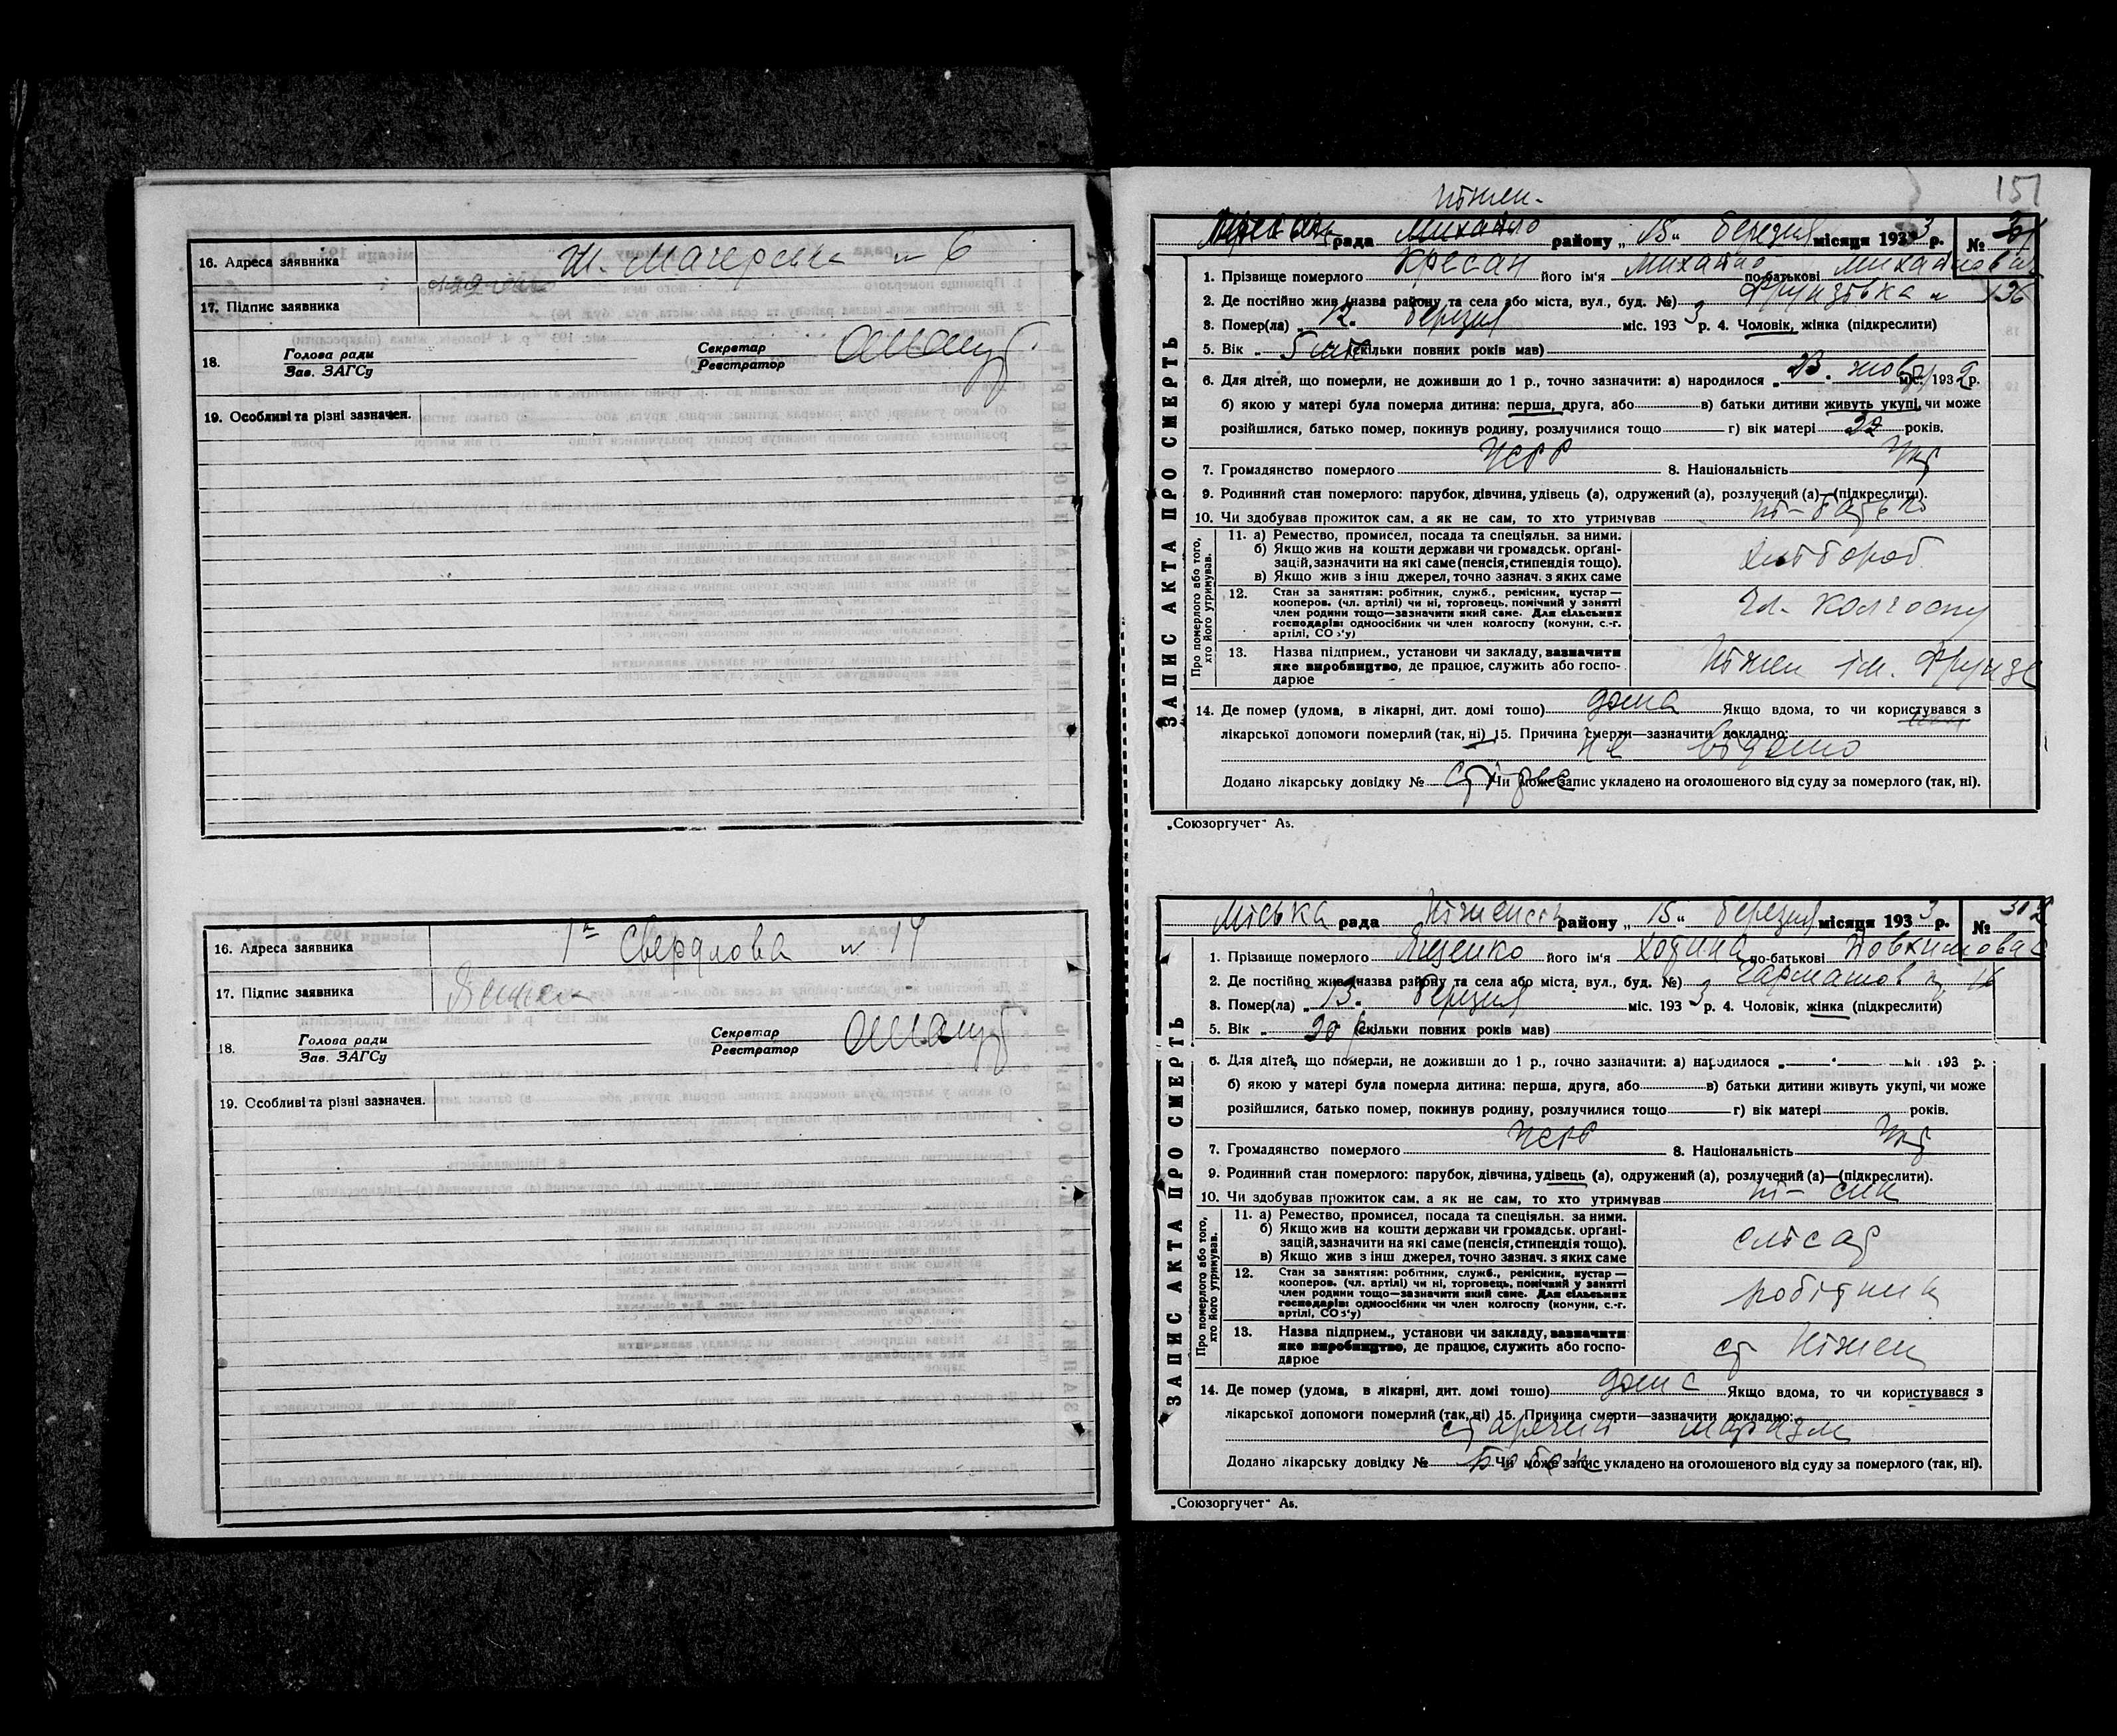 16. Адреса заявника Ж. Мачерська № 6
17. Підпис заявника
18. Голова ради
Зав. ЗАГСу
Секретар
Реєстратор
19. Особливі та різні зазначен.
16. Адреса заявника 1а Свердлова № 14
17. Підпис заявника
18. Голова ради
Зав. ЗАГСу
Секретар
Реєстратор
19. Особливі та різні зазначен.
151
Ніжен-
рада Михайло району „ 15 " березня місяця 1933 р. №
ЗАПИС АКТА ПРО СМЕРТЬ
1. Прізвище померлого Кресан його ім'я Михайло по-батькові Михайлович
2. Де постійно жив (назва району та села або міста, вул., буд. №) Фрунзівка № 136
3. Помер(ла) „ 12. березня міс. 1933 р. 4. Чоловік, жінка (підкреслити)
5. Вік „ 5 міс (скільки повних років мав)
6. Для дітей, що померли, не доживши до 1 р., точно зазначити: а) народилося „ 23. жовт міс. 1932 р.
б) якою у матері була померла дитина: перша, друга, або в) батьки дитини живуть укупі, чи може
розійшлися, батько помер, покинув родину, розлучилися тощо г) вік матері 22 років.
7. Громадянство померлого УСРР 8. Національність Укр
9. Родинний стан померлого: парубок, дівчина, удівець (а), одружений (а), розлучений (а)—(підкреслити).
10. Чи здобував прожиток сам, а як не сам, то хто утримував ні - батько
Про померлого або того, хто його утримував.
11. а) Ремество, промисел, посада та спеціяльн. за ними.
б) Якщо жив на кошти держави чи громадськ. органі-
зацій, зазначити на які саме (пенсія, стипендія тощо).
в) Якщо жив з інш джерел, точно зазнач. з яких саме
хлібороб
12. Стан за заняттям: робітник, служб., ремісник, кустар—
кооперов. (чл. артілі) чи ні, торговець, помічний у занятті
член родини тощо—зазначити який саме. Для сільських
господарів: одноосібник чи член колгоспу (комуни, с.-г.
артілі, СОз'у)
чл. колгоспу
13. Назва підприєм., установи чи закладу, зазначити
яке виробництво, де працює, служить або госпо-
дарює
Ніжен ім. Фрунзе
14. Де помер (удома, в лікарні, дит. домі тошо) дома Якщо вдома, то чи користувався з
лікарської допомоги померлий (так, ні) 15. Причина смерти—зазначити докладно:
не відомо
Додано лікарську довідку № Чи може запис укладено на оголошеного від суду за померлого (так, ні).
„Союзоргучет" А5.
Міська рада Ніженськ району „ 15 " березня місяця 1933 р. № 302
ЗАПИС АКТА ПРО СМЕРТЬ
1. Прізвище померлого Яценко його ім'я по-батькові Йовхимовна
2. Де постійно жив (назва району та села або міста, вул., буд. №) Гарматов 16
3. Помер(ла) „ 13. березня міс. 1933 р. 4. Чоловік, жінка (підкреслити)
5. Вік „ (скільки повних років мав)
6. Для дітей, що померли, не доживши до 1 р., точно зазначити: а) народилося „ . міс 193 р.
б) якою у матері була померла дитина: перша, друга, або в) батьки дитини живуть укупі, чи може
розійшлися, батько помер, покинув родину, розлучилися тощо г) вік матері років.
7. Громадянство померлого УСРР 8. Національність Укр
9. Родинний стан померлого: парубок, дівчина, удівець (а), одружений (а), розлучений (а)—(підкреслити).
10. Чи здобував прожиток сам, а як не сам, то хто утримував ні - син
Про померлого або того, хто його утримував.
11. а) Ремество, промисел, посада та спеціяльн. за ними.
б) Якщо жив на кошти держави чи громадськ. органі-
зацій, зазначити на які саме (пенсія, стипендія тощо).
в) Якщо жив з інш джерел, точно зазнач. з яких саме
слюсар
12. Стан за заняттям: робітник, служб., ремісник, кустар—
кооперов. (чл. артілі) чи ні, торговець, помічний у занятті
член родини тощо—зазначити який саме. Для сільських
господарів: одноосібник чи член колгоспу (комуни, с.-г.
артілі, СОз'у)
робітник
13. Назва підприєм., установи чи закладу, зазначити
яке виробництво, де працює, служить або госпо-
дарює
ст Ніжен
14. Де помер (удома, в лікарні, дит. домі тошо) дома Якщо вдома, то чи користувався з
лікарської допомоги померлий (так, ні) 15. Причина смерти—зазначити докладно:
старечий маразм
Додано лікарську довідку № Чи може запис укладено на оголошеного від суду за померлого (так, ні).
„Союзоргучет" А5.